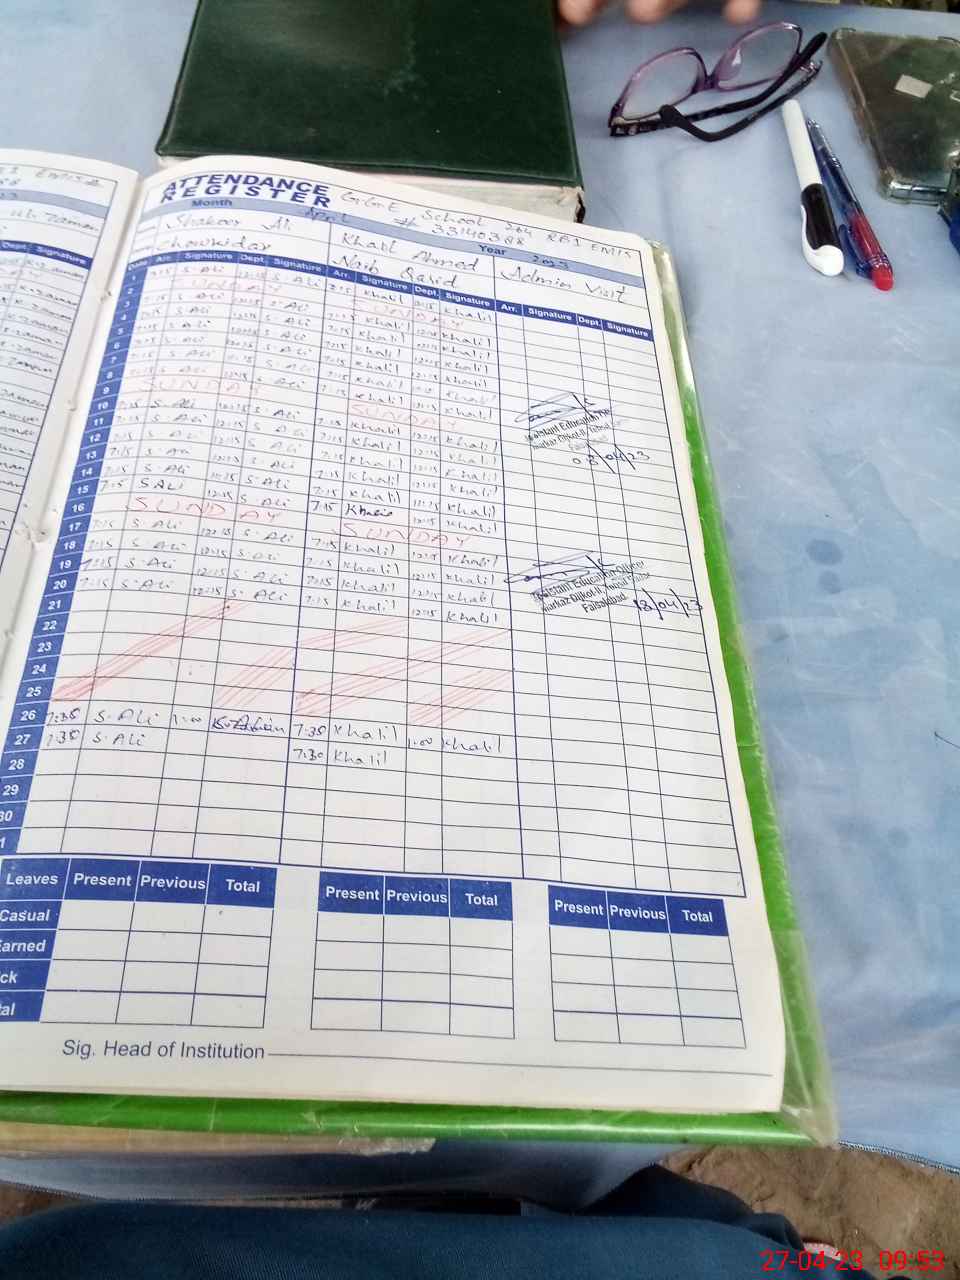 ATTENDANCE
REGISTER
G.G.E School 264 RB1 EMIS
# 33140388
Month April Year 2023
Shakoor Ali
Khalil Ahmed
Admin Visit
Chowkidar
Naib Qasid
Date Arr. Signature Dept. Signature Arr. Signature Dept. Signature Arr. Signature Dept. Signature
1 7:15 S.Ali 12:15 S.Ali 7:15 Khalil 12:15 Khalil
2 SUNDAY SUNDAY
3 7:15 S.Ali 12:15 S.Ali 7:15 Khalil 12:15 Khalil
4 7:15 S.Ali 12:15 S.Ali 7:15 Khalil 12:15 Khalil
5 7:15 S.Ali 12:15 S.Ali 7:15 Khalil 12:15 Khalil
6 7:15 S.Ali 12:15 S.Ali 7:15 Khalil 12:15 Khalil
7 7:15 S.Ali 12:15 S.Ali 7:15 Khalil 12:15 Khalil
8 7:15 S.Ali 12:15 S.Ali 7:15 Khalil 12:15 Khalil
9 SUNDAY SUNDAY
10 7:15 S.Ali 12:15 S.Ali 7:15 Khalil 12:15 Khalil
11 7:15 S.Ali 12:15 S.Ali 7:15 Khalil 12:15 Khalil
12 7:15 S.Ali 12:15 S.Ali 7:15 Khalil 12:15 Khalil
13 7:15 S.Ali 12:15 S.Ali 7:15 Khalil 12:15 Khalil
14 7:15 S.Ali 12:15 S.Ali 7:15 Khalil 12:15 Khalil
15 7:15 S.Ali 12:15 S.Ali 7:15 Khalil 12:15 Khalil
16 SUNDAY SUNDAY
17 7:15 S.Ali 12:15 S.Ali 7:15 Khalil 12:15 Khalil
18 7:15 S.Ali 12:15 S.Ali 7:15 Khalil 12:15 Khalil
19 7:15 S.Ali 12:15 S.Ali 7:15 Khalil 12:15 Khalil
20 7:15 S.Ali 12:15 S.Ali 7:15 Khalil 12:15 Khalil
21
22
23
24
25
26 7:30 S.Ali 1:00 7:30 Khalil 1:00 Khalil
27 7:30 S.Ali 7:30 Khalil
28
29
30
1
Assistant Education
Markaz Dijkot-II, Tehsil
08/04/23
Assistant Education Officer
Markaz Dijkot-II, Tehsil
Faisalabad
18/04/23
Leaves Present Previous Total Present Previous Total Present Previous Total
Casual
Earned
ck
tal
Sig. Head of Institution
27-04-23 09:53